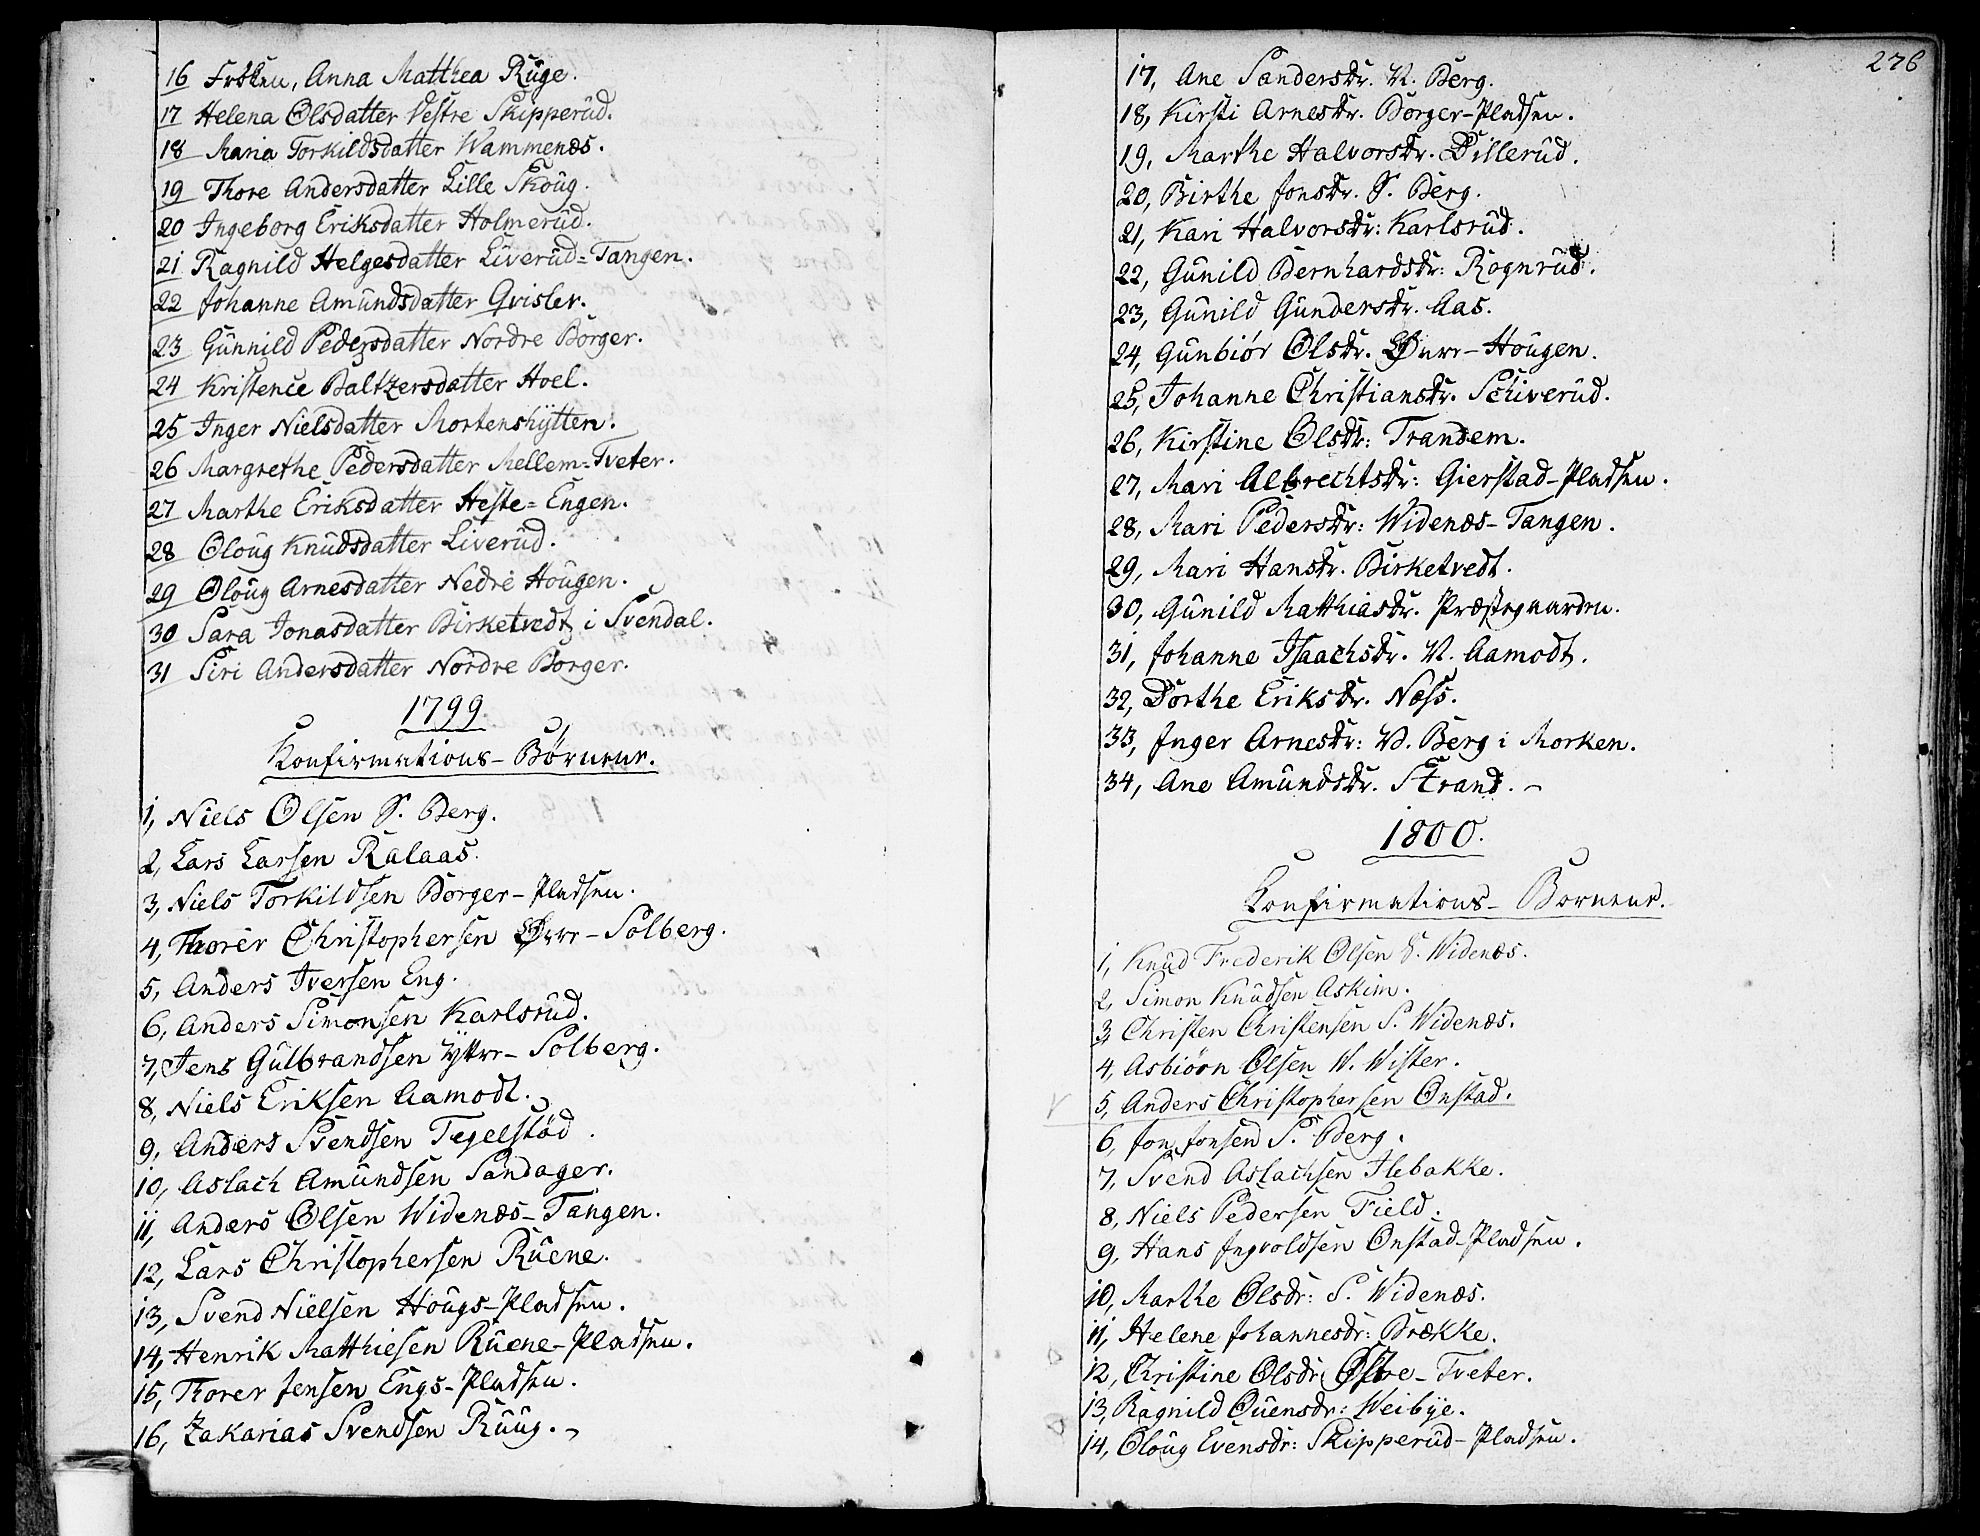 16 Frøken, Anna Matthea Rüge.
17 Helena Olsdatter Vestre Skipperüd.
18 Maria Torkildsdatter Wammenæs.
19 Thore Andersdatter Lille Skoüg.
20 Ingeborg Eriksdatter Holmerüd.
21 Ragnild Helgesdatter Liverüd=Tangen.
22 Johanne Amündsdatter Qvisler.
23 Günnild Pedersdatter Nordre Borger.
24 Kristence Baltzersdatter Hoel.
25 Inger Nielsdatter Mortenshÿtten.
26 Margrethe Pedersdatter Mellem=Tveter.
27 Marthe Eriksdatter Heste=Engen.
28 Oloüg Knüdsdatter Liverüd.
29 Oloüg Arnesdatter Nedre Hoügen.
30 Sara Jonasdatter Birketvedt i Svendal.
31 Siri Andersdatter Nordre Borger.
1799.
Konfirmations-Børnene.
1, Niels Olsen S. Berg.
2, Lars Larsen Ralaas.
3, Niels Torkildsen Borger-Pladsen.
4, Thorer Christophersen Øvre-Solberg.
5, Anders Iversen Eng.
6, Anders Simonsen Karlsrüd.
7, Jens Gülbrandsen Yttre-Solberg.
8, Niels Eriksen Aamodt.
9, Anders Svendsen Tegelstöd.
10, Aslach Amündsen Sandager.
11, Anders Olsen Widenæs-Tangen.
12, Lars Christophersen Rüene.
13, Svend Nielsen Hoügs-Pladsen.
14, Henrik Matthiesen Rüene-Pladsen.
15, Thorer Jensen Engs-Pladsen.
16, Zakarias Svendsen Rüüg.
276
17, Ane Sandersdr. N. Berg.
18, Kirsti Arnesdr. Borger-Pladsen.
19, Marthe Halvorsdr. Dillerüd.
20, Birthe Jonsdr. S. Berg.
21, Kari Halvorsdr: Karlsrüd.
22, Günild Bernhardsdr: Rognrüd.
23, Günild Gündersdr. Aas.
24, Günbiör Olsdr. Øvre-Hoügen.
25, Johanne Christiansdr. Schiverüd.
26, Kirstine Olsdr: Trandem.
27, Mari Albrechtsdr: Gierstad-Pladsen.
28, Mari Pedersdr: Widenæs-Tangen.
29, Mari Hansdr. Birketvedt.
30, Günild Matthiasdr. Præstegaarden.
31, Johanne Isaachsdr. N. Aamodt.
32, Dorthe Eriksdr. Næss.
33, Inger Arnesdr: N. Berg i Morken.
34, Ane Amündsdr. Strand.
1800.
Konfirmations-Bornene.
1, Knüd Frederik Olsen S. Widenæs.
2, Simon Knüdsen Askim.
3, Christen Christensen S. Widenæs.
4, Asbiörn Olsen W. Wister.
5, Anders Christophersen Onstad.
6, Jon Jonsen S. Berg.
7, Svend Aslachsen Ilebakke.
8, Niels Pedersen Field.
9, Hans Ingvoldsen Onstad-Pladsen.
10, Marthe Olsdr: S. Widenæs.
11, Helene Johannesdr: Brække.
12, Christine Olsdr: Østre-Tveter.
13, Ragnild Ouensdr: Weibÿe.
14, Oloüg Evensdr: Skipperüd-Pladsen.